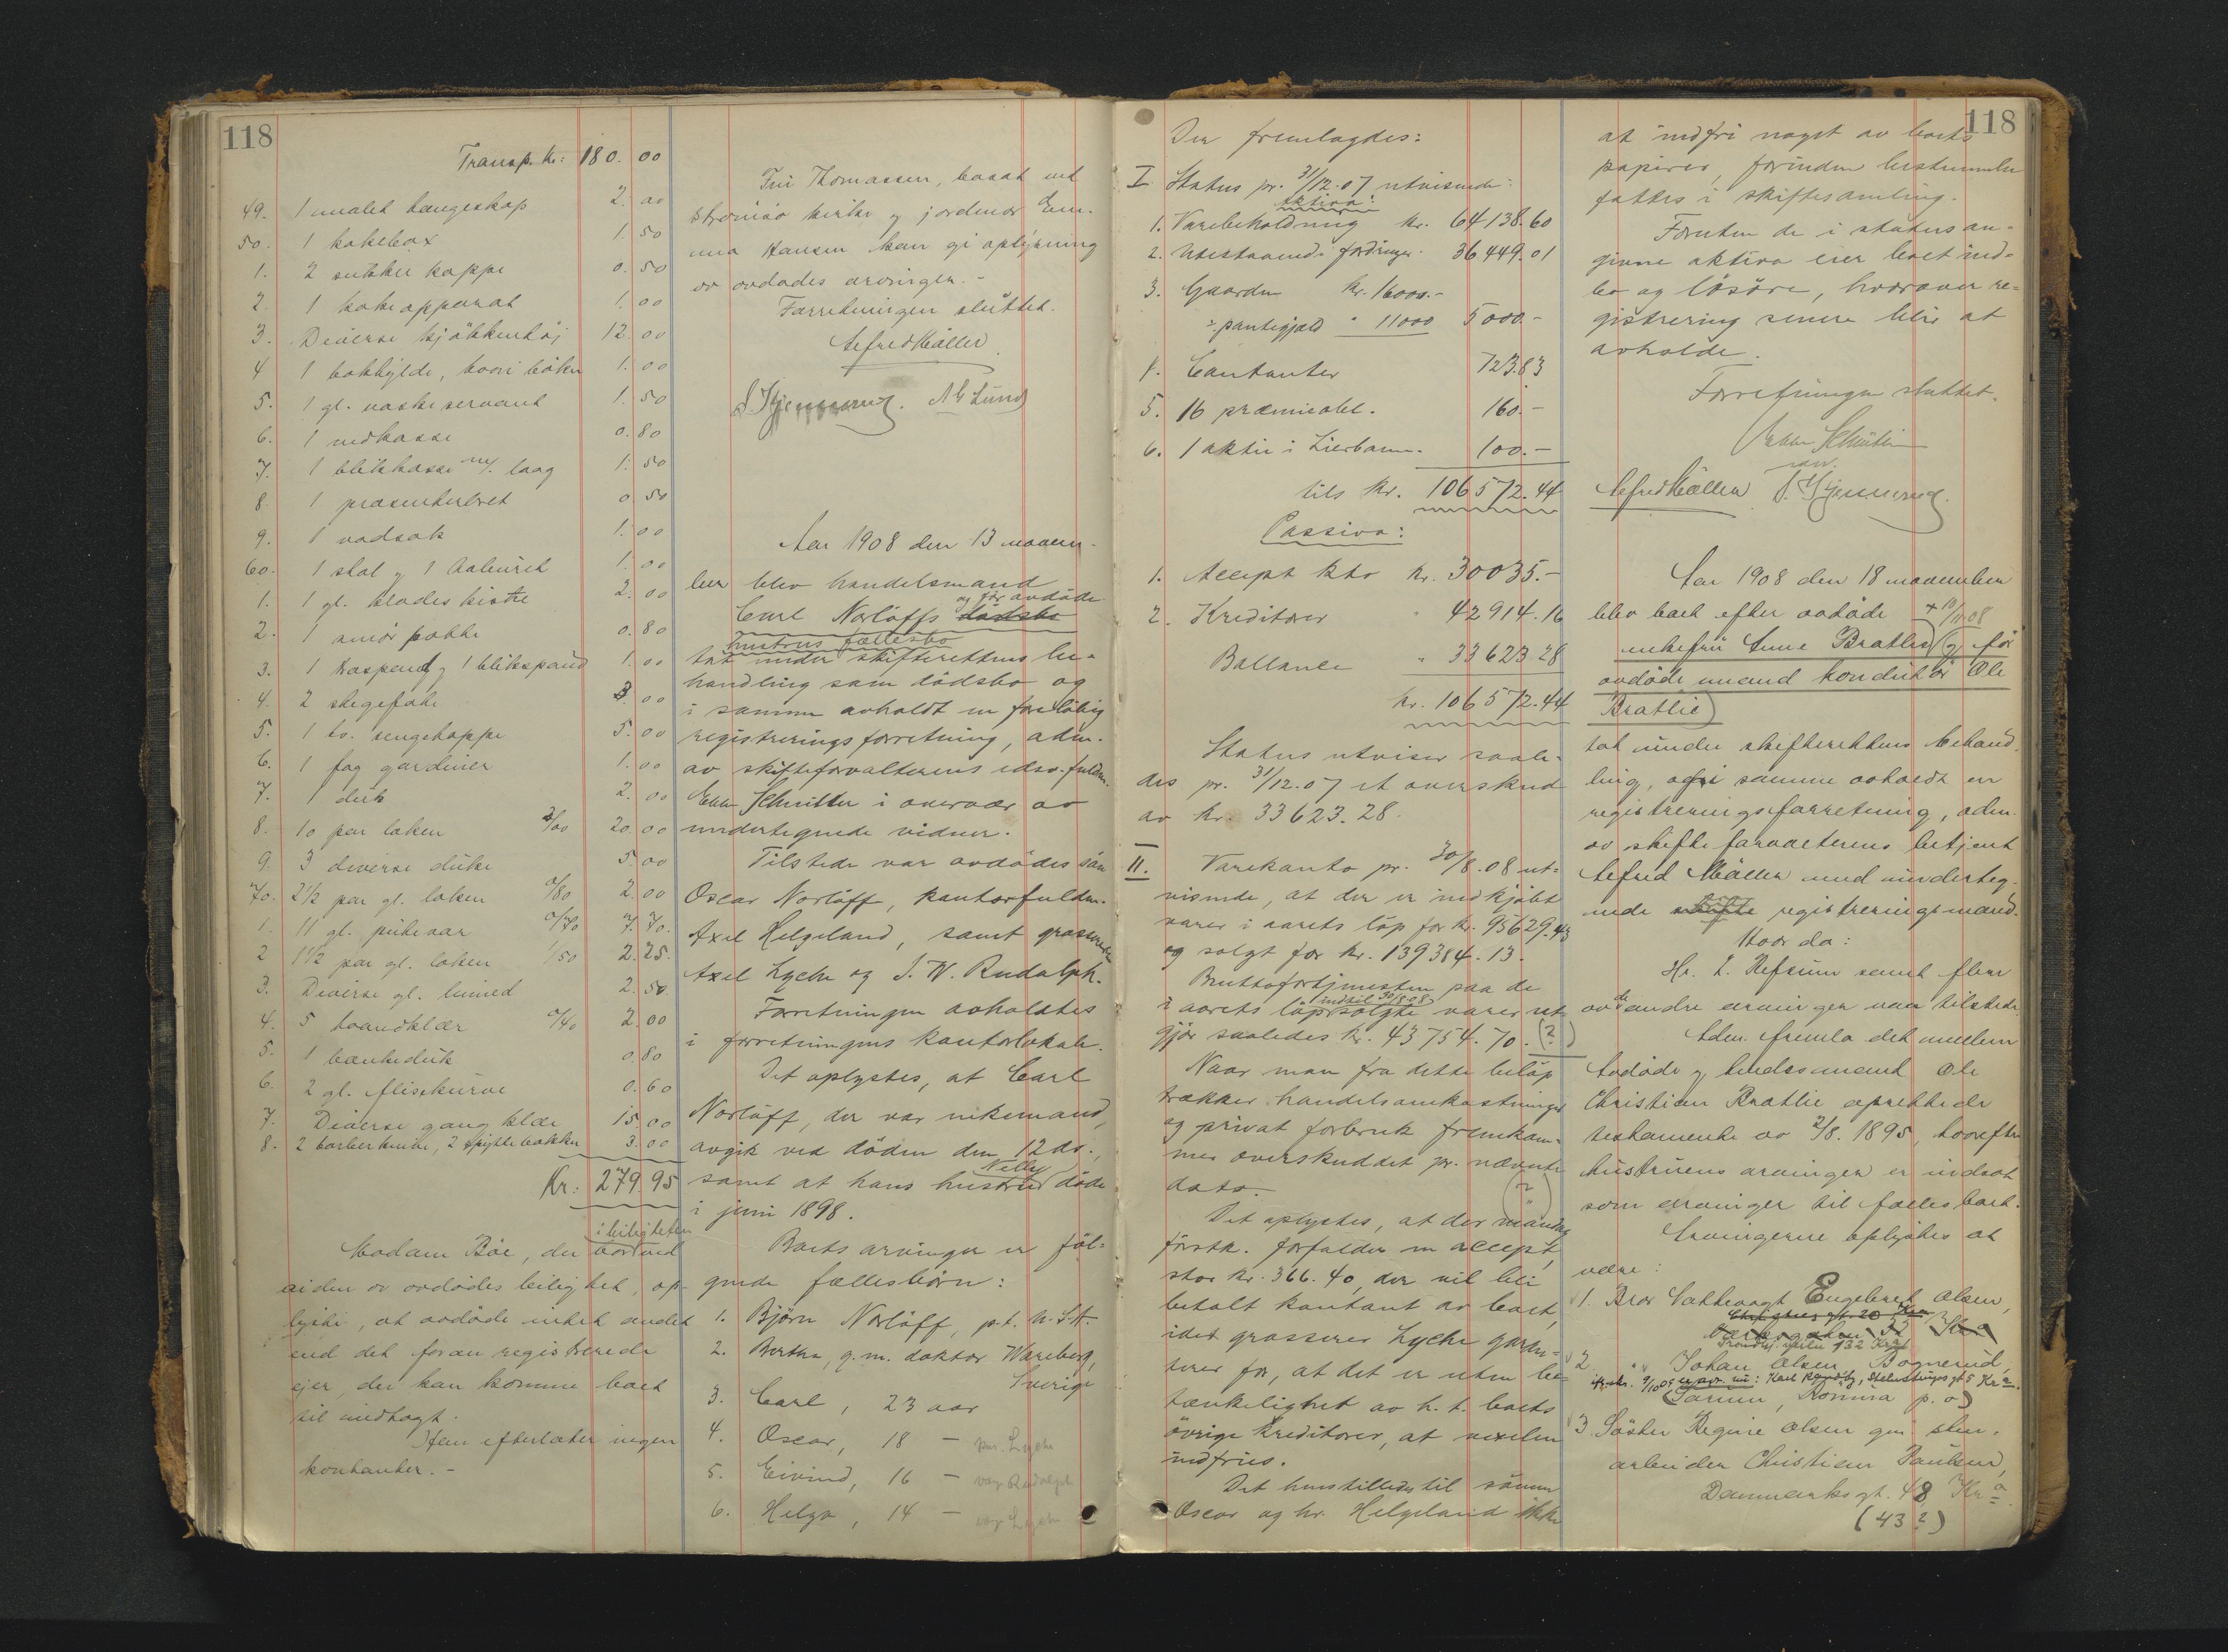 118
Transp. kr: 180.00
49. 1 malet hengeskap 2.00
50. 1 kakebox 1.50
1. 2 sukker koppe 0.50
2. 1 kokeapparat 1.00
3. Diverse kjøkkentøj 12.00
4 1 bokhylde, hvori bøker 1.00
5. 1 gl. vaskeservant 1.50
6. 1 vedkasse 0.80
7. 1 blikkasse m/. laag 1.50
8. 1 presenterbret 0.50
9. 1 vadsæk 1.00
60. 1 stol y 1 taburet 1.00
1. 1 gl. klædeskiste 2.00
2. 1 smørbøtte 0.80
3. 1 vaspand y 1 blikspand 1.00
4. 2 stegefate 3.00
5. 1 to. sengeteppe 5.00
6. 1 fag gardiner 1.00
7. 1 duk 2.00
8. 10 par laken 2/00 20.00
9. 3 diverse duke 5.00
70. 2½ par gl. laken 0/80 2.00
1. 11 gl. putevar 0/70 7.70.
2 1½ par gl. laken 1/50 2.25.
3. Diverse gl. linned 2.50
4. 5 haandklær 0/40 2.00
5. 1 bænkeduk 0.80
6. 2 gl. flisekurve 0.60
7. Diverse gang klær 15.00
8. 2 barberknive, 2 spyttebakker 3.00
Kr: 279.95
i leiligheten
Madam Bøe, der bor ved
siden av avdødes leilighet, op-
lyste, at avdøde intet andet
end det foran registrerede
ejer, der kan komme boet
til indtægt.
Hun efterlater ingen
kontanter. -
Fru Thomassen, bosat ved
Strømsø kirke y jordmor Em-
ma Hansen kan gi oplysning
om avdødes arvinger. -
Forretningen sluttet.
Alfred Møller
S. Hjemmerud. A G Lund
Aar 1908 den 13 novem-
ber blev handelsmand
og før avdøde
Carl Norløffs dødsbo
hustrus fællesbo
tat under skifterettens be-
handling som dødsbo og
i samme avholdt en foreløbig
registreringsforretning, adm.
av skifteforvalterens edsv. fuldm.
Ebbe Schmitler i overvær av
undertegnede vidner.
Tilstede var avdødes søn
Oscar Norløff, kontorfuldm.
Axel Helgeland, samt grosserer
Axel Lyche og J. W. Rudolph.
Forretningen avholdtes
i forretningens kontorlokale.
Det oplystes, at Carl
Norløff, der var enkemand,
avgik ved døden den 12 ds.,
Nelly
samt at hans hustru døde
i juni 1898.
Boets arvinger er føl-
gende fællesbørn:
1. Bjørn Norløff, p.t. U.S.A.
2. Bertha, g.m. doktor Wareberg,
Sverige
3. Carl, 23 aar
4. Oscar, 18 - Lyche
5. Eivind, 16 - vær. Rudolph
6. Helga, 14 - vær. Lyche
118
Der fremlagdes:
I Status pr. 31/12.07 utvisende:
Aktiva:
1. Varebeholdning kr. 64138.60
2. Utestaaende fordringer 36449.01
3. Gaarden kr. 16000.-
÷ pantegjæld " 11000 5000.-
4. Contanter 723.83
5. 16 præmieobl. 160.-
6. 1 aktie i Lierbanen. 100.-
tils kr. 106572.44
Passiva:
1. Accept kto kr. 30035.-
2. Kreditorer " 42914.16
Ballance " 33623.28
kr. 106572.44
Status utviser saale-
des pr. 31/12.07 et overskud
av kr. 33623.28.
II. Varekonto pr. 30/8.08 ut-
visende, at der er indkjøbt
varer i aarets løp for kr. 95629.43
og solgt for kr. 139384.13.
Bruttofortjenesten paa de
indtil 30/8 08
i aarets løp solgte varer ut-
gjør saaledes kr. 43754.70. (?)
Naar man fra dette beløp
trækker handelsomkostninger
og privat forbruk fremkom-
mer overskuddet pr. nævnte
dato.
Det oplystes, at der mandag
førstk. forfalder en accept,
stor kr. 366.40, der vil bli
betalt kontant av boet,
idet grosserer Lyche garan-
terer for, at det er uten be-
tænkelighet av h.t. boets
øvrige kreditorer, at vexelen
indfries.
Det henstilledes til sønnen
Oscar og hr. Helgeland ikke
118
at indfri noget av boets
papirer, forinden bestemmelse
fattes i skiftesamling.
Foruten de i status an-
givne aktiva eier boet ind-
bo og løsøre, hvorover re-
gistrering senere blir at
avholde.
Forretningen sluttet.
Ebbe Schmitler
Alfred Møller S. Hjemmerud.
Aar 1908 den 18 november
blev boet efter avdøde + 10/11 08
enkefru Anne Bratlie (y før
avdøde mand konduktør Ole
Bratlie)
tat under skifterettens behand-
ling, og i samme avholdt en
registreringsforretning, adm.
av skifteforvalterens betjent
Alfred Møller med underteg-
nede skifte registreringsmænd.
Hvor da:
Hr. L. Refsum samt flere
av de andre arvinger var tilstede.
Adm. fremla det mellem
Avdøde y tidl. mand Ole
Christian Bratlie oprettede
testamente av 2/8. 1895, hvorefter
hustruens arvinger er indsat
som arvinger til fællesboet.
Arvingerne oplystes at
være:
1. Bror Vaktvogt Engebret Olsen,
Trondhj. 132 Kra
2. " " Johan Olsen Bognerud,
9/10 09 nu: Karl Stenstrups gt 5 Kra.
(Sørum, Romna p.o.)
3. Søster Regine Olsen gm sten-
arbeider Christian Paulsen,
Danmarksgt. 48 Kra.
(43?)